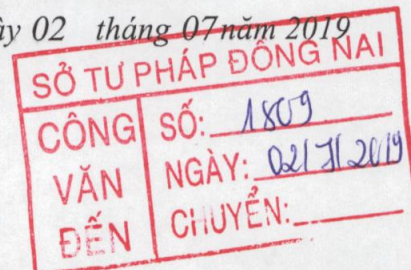 ày 02 tháng 07 năm 2019
SỞ TƯ PHÁP ĐỒNG NAI
CÔNG VĂN ĐẾN
SỐ: 1809
NGÀY: 02/7/2019
CHUYỂN: